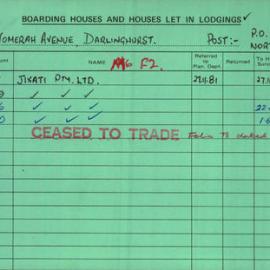 BOARDING HOUSES AND HOUSES LET IN LODGINGS ✓
OMERAH AVENUE, DARLINGHURST. POST:- P.O.
NOR
NAME F2. Referred to Plan. Dept. Returned To H
JIKATI PTY. LTD. 27.11.81 27.1
✓ ✓ ✓
✓ ✓ ✓ 22
✓ ✓ ✓ 1.
CEASED TO TRADE